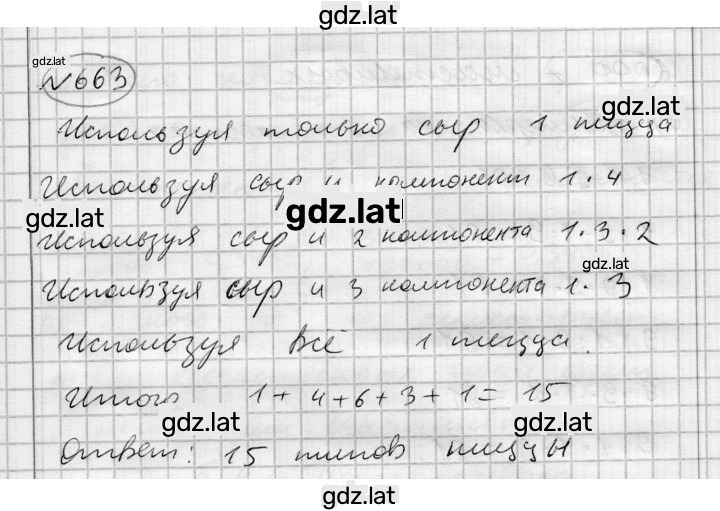 gdz.lat
gdz.lat
№663
gdz.lat
Используя только сыр 1 пицца
Используя сыр и компонент 1·4
gdz.lat
gdz.lat
Используя сыр и 2 компонента 1·3·2
gdz.lat
Используя сыр и 3 компонента 1·3
Используя всё 1 пицца.
Итого 1+4+6+3+1=15
gdz.lat
gdz.lat
Ответ: 15 типов пиццы
gdz.lat